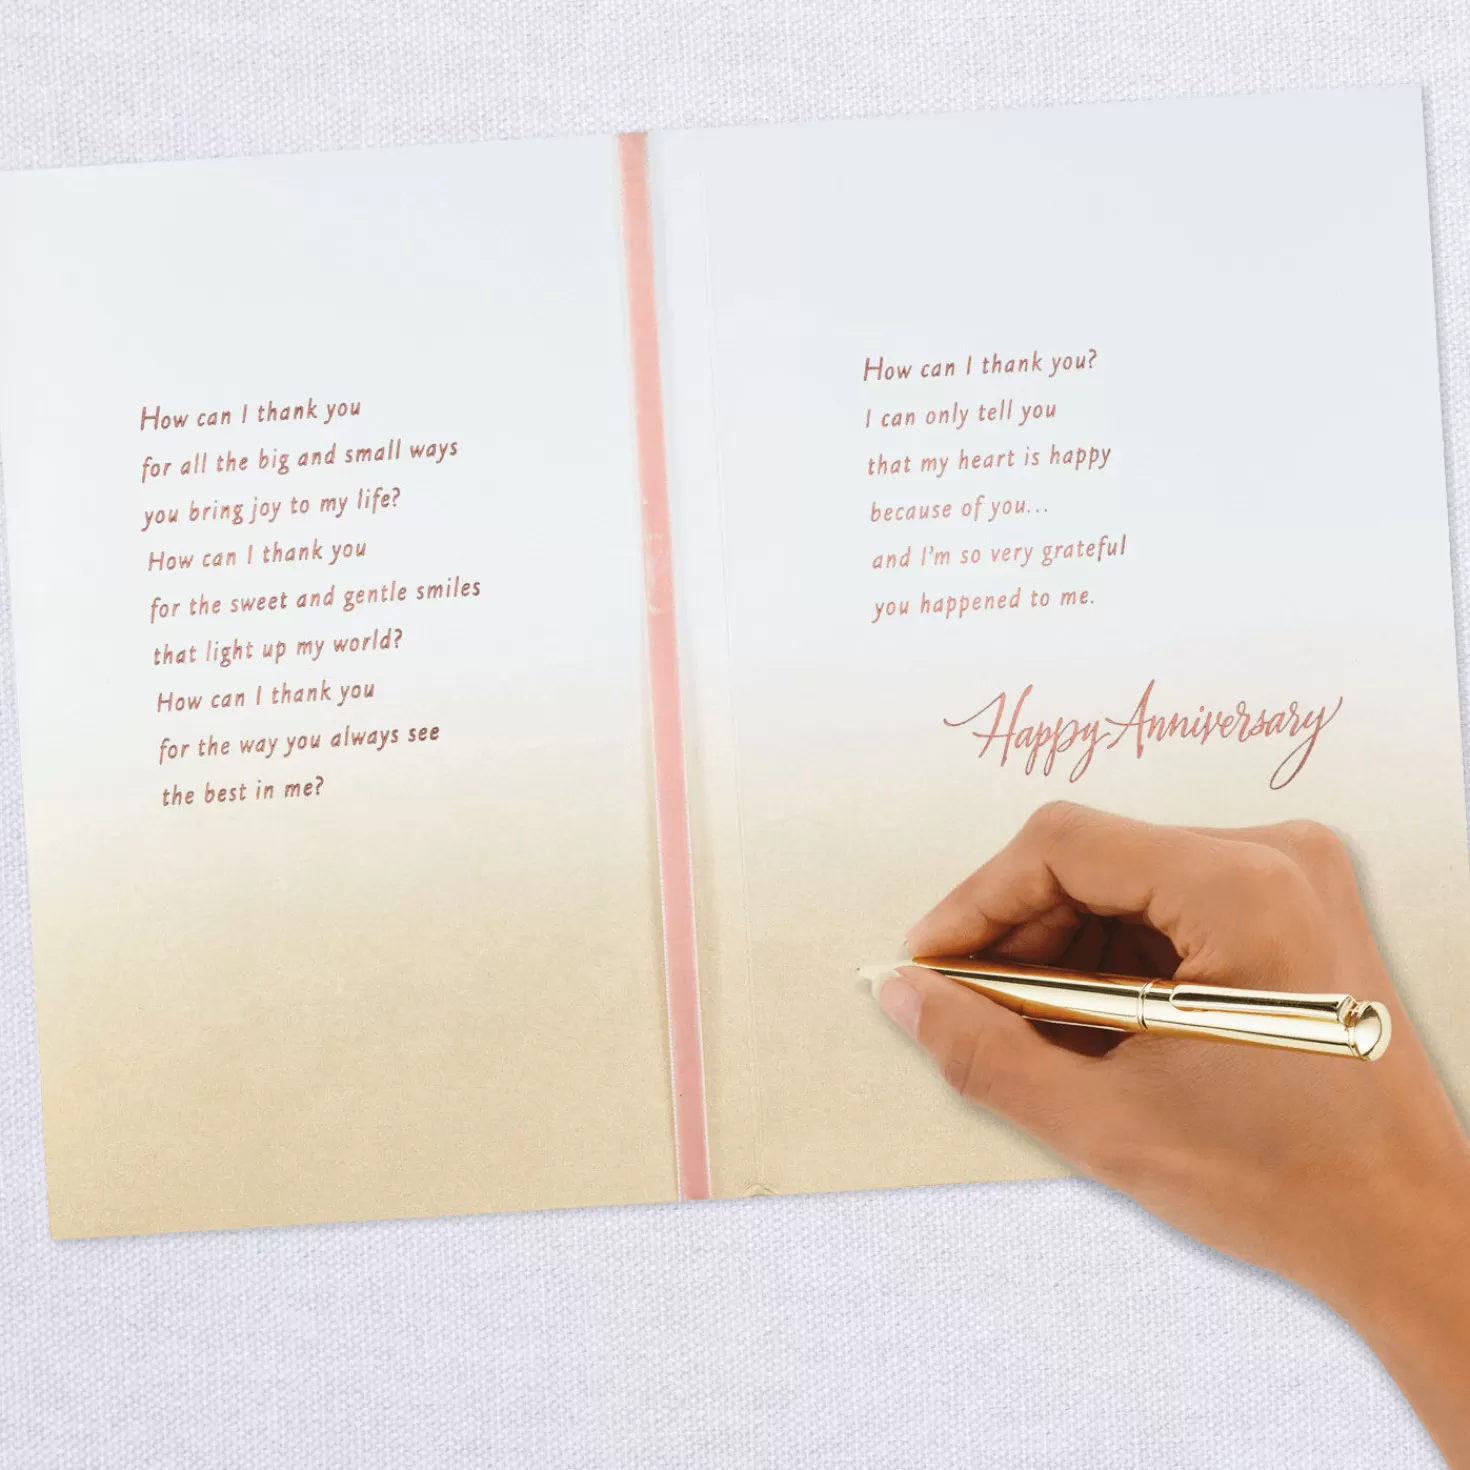 How can I thank you
for all the big and small ways
you bring joy to my life?
How can I thank you
for the sweet and gentle smiles
that light up my world?
How can I thank you
for the way you always see
the best in me?
How can I thank you?
I can only tell you
that my heart is happy
because of you...
and I'm so very grateful
you happened to me.
Happy Anniversary